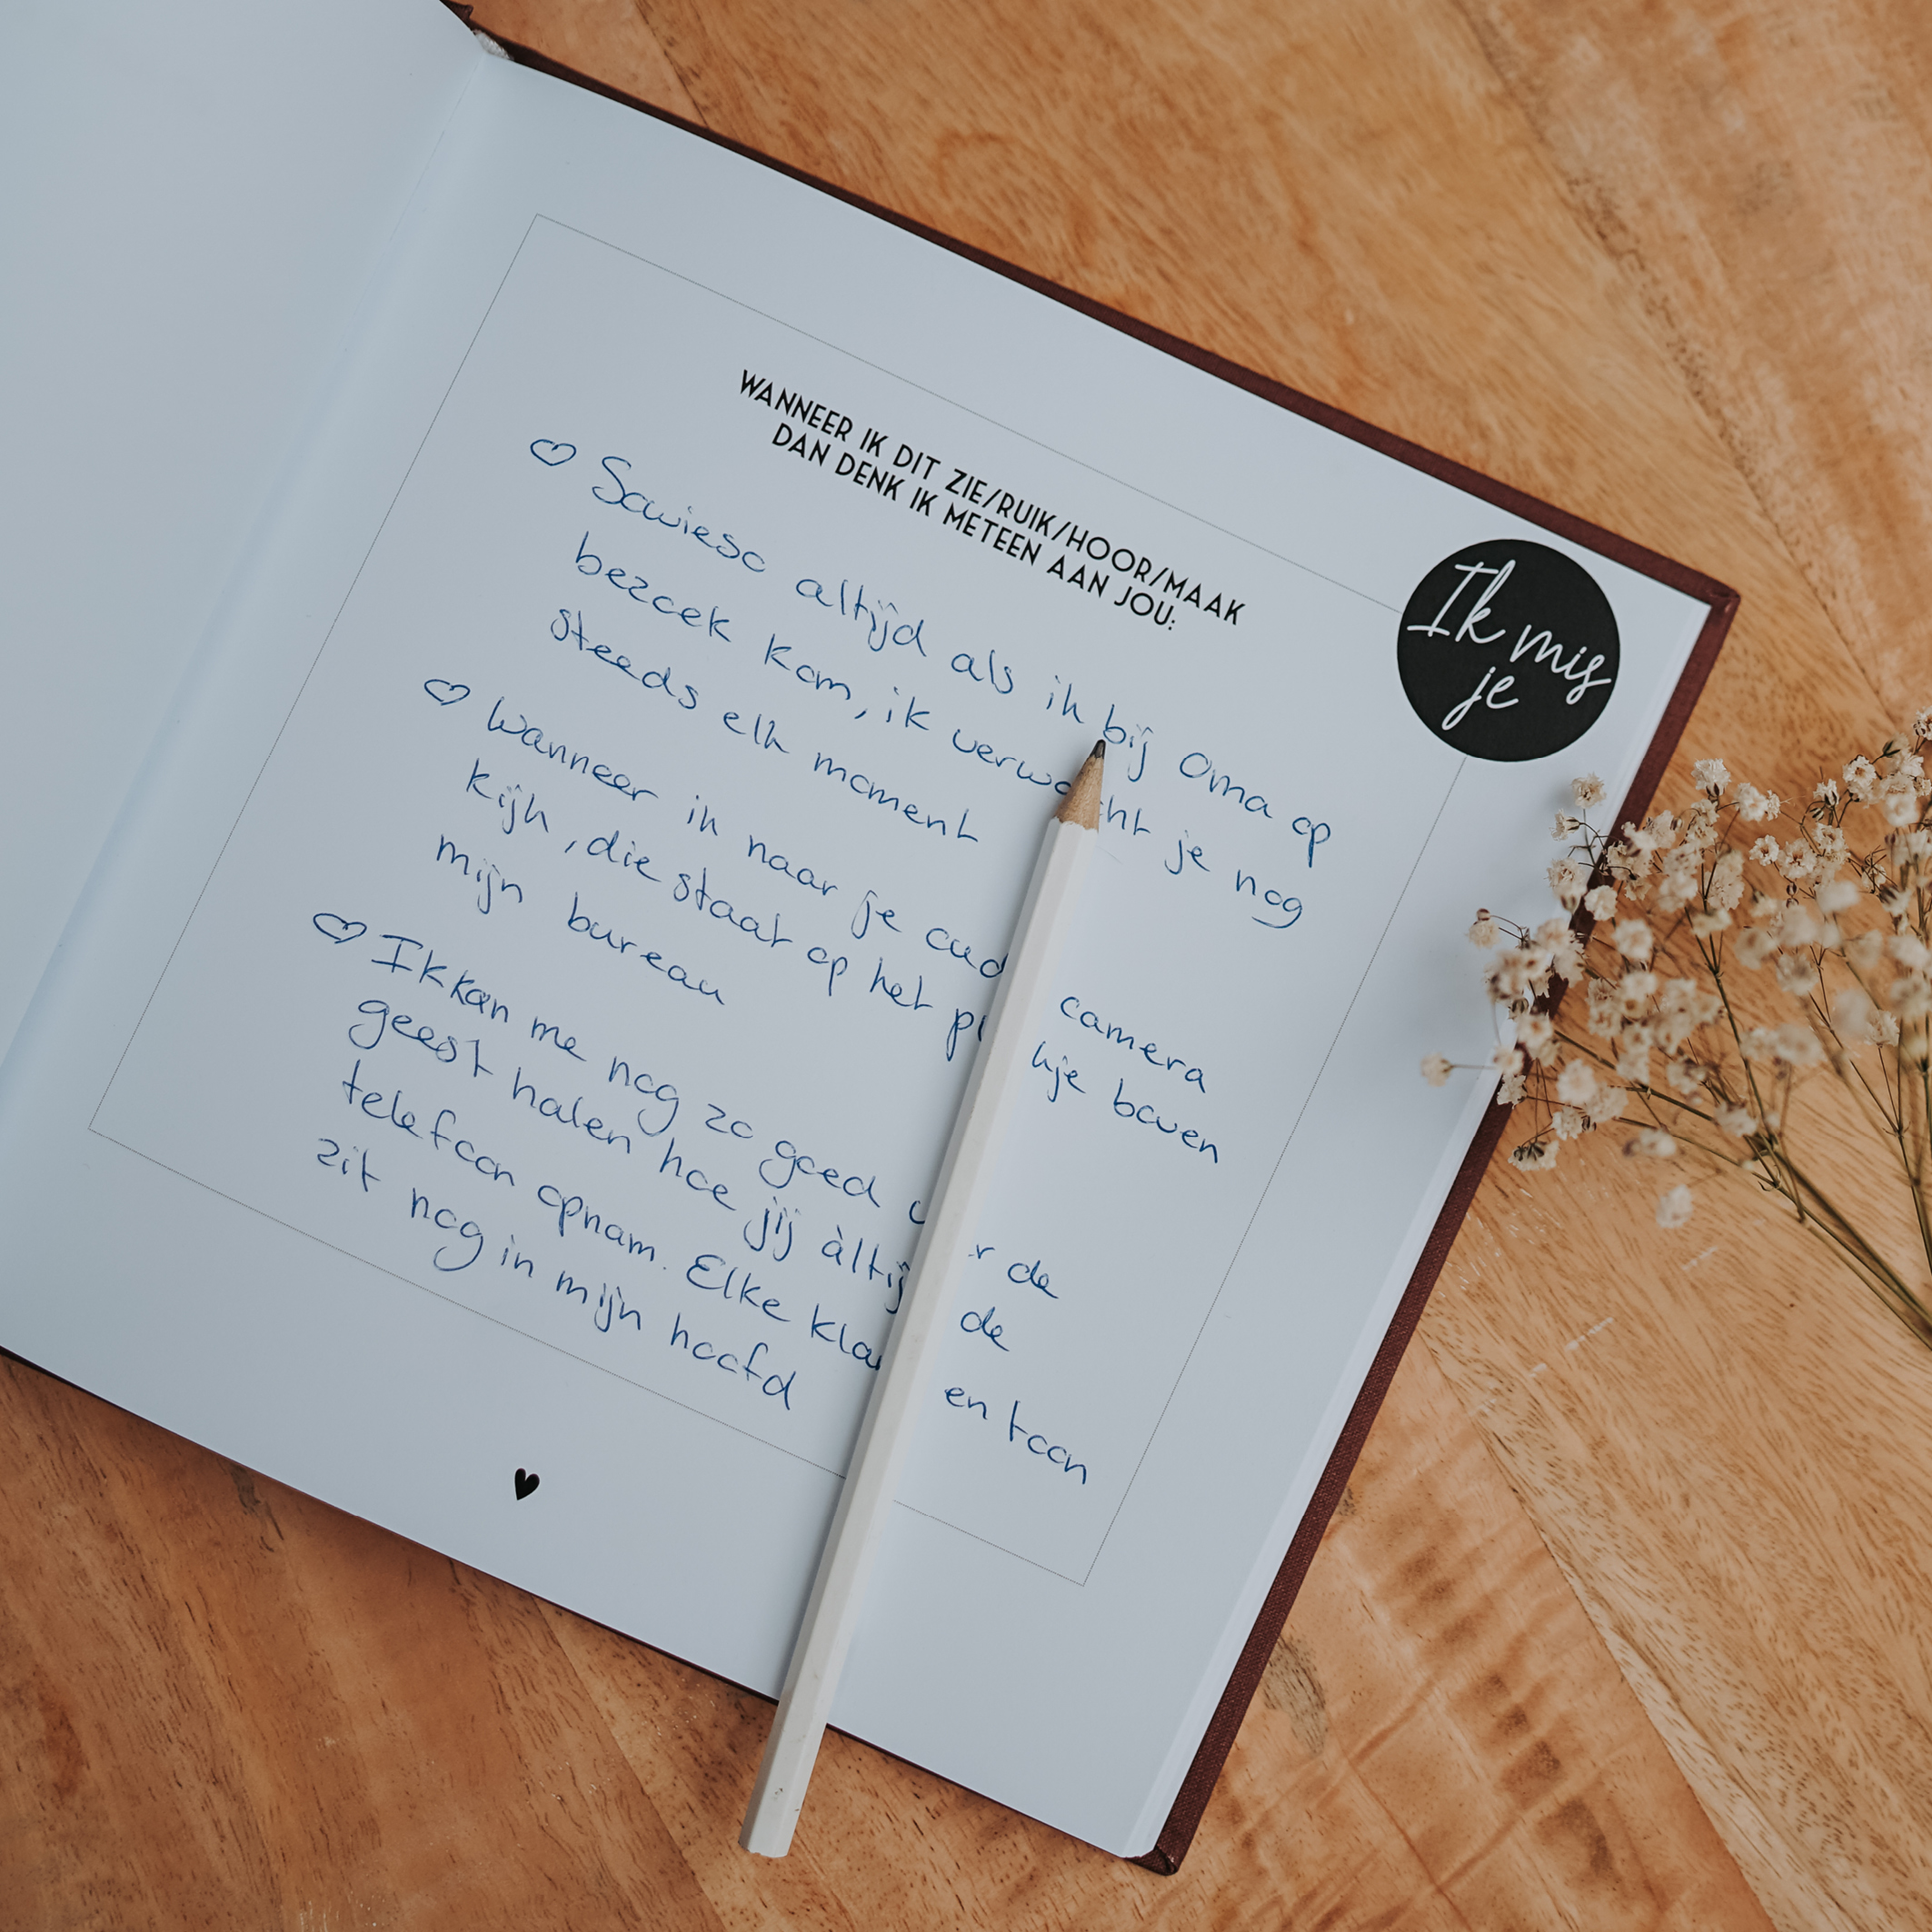 WANNEER IK DIT ZIE/RUIK/HOOR/MAAK
DAN DENK IK METEEN AAN JOU:
Ik mis
je
Sowieso altijd als ik bij Oma op
bezoek kom, ik verwacht je nog
steeds elk moment
Wanneer ik naar je oud camera
kijk, die staat op het boven
mijn bureau
Ik kan me nog zo goed de
geest halen hoe jij àltij de
telefoon opnam. Elke en toon
zit nog in mijn hoofd